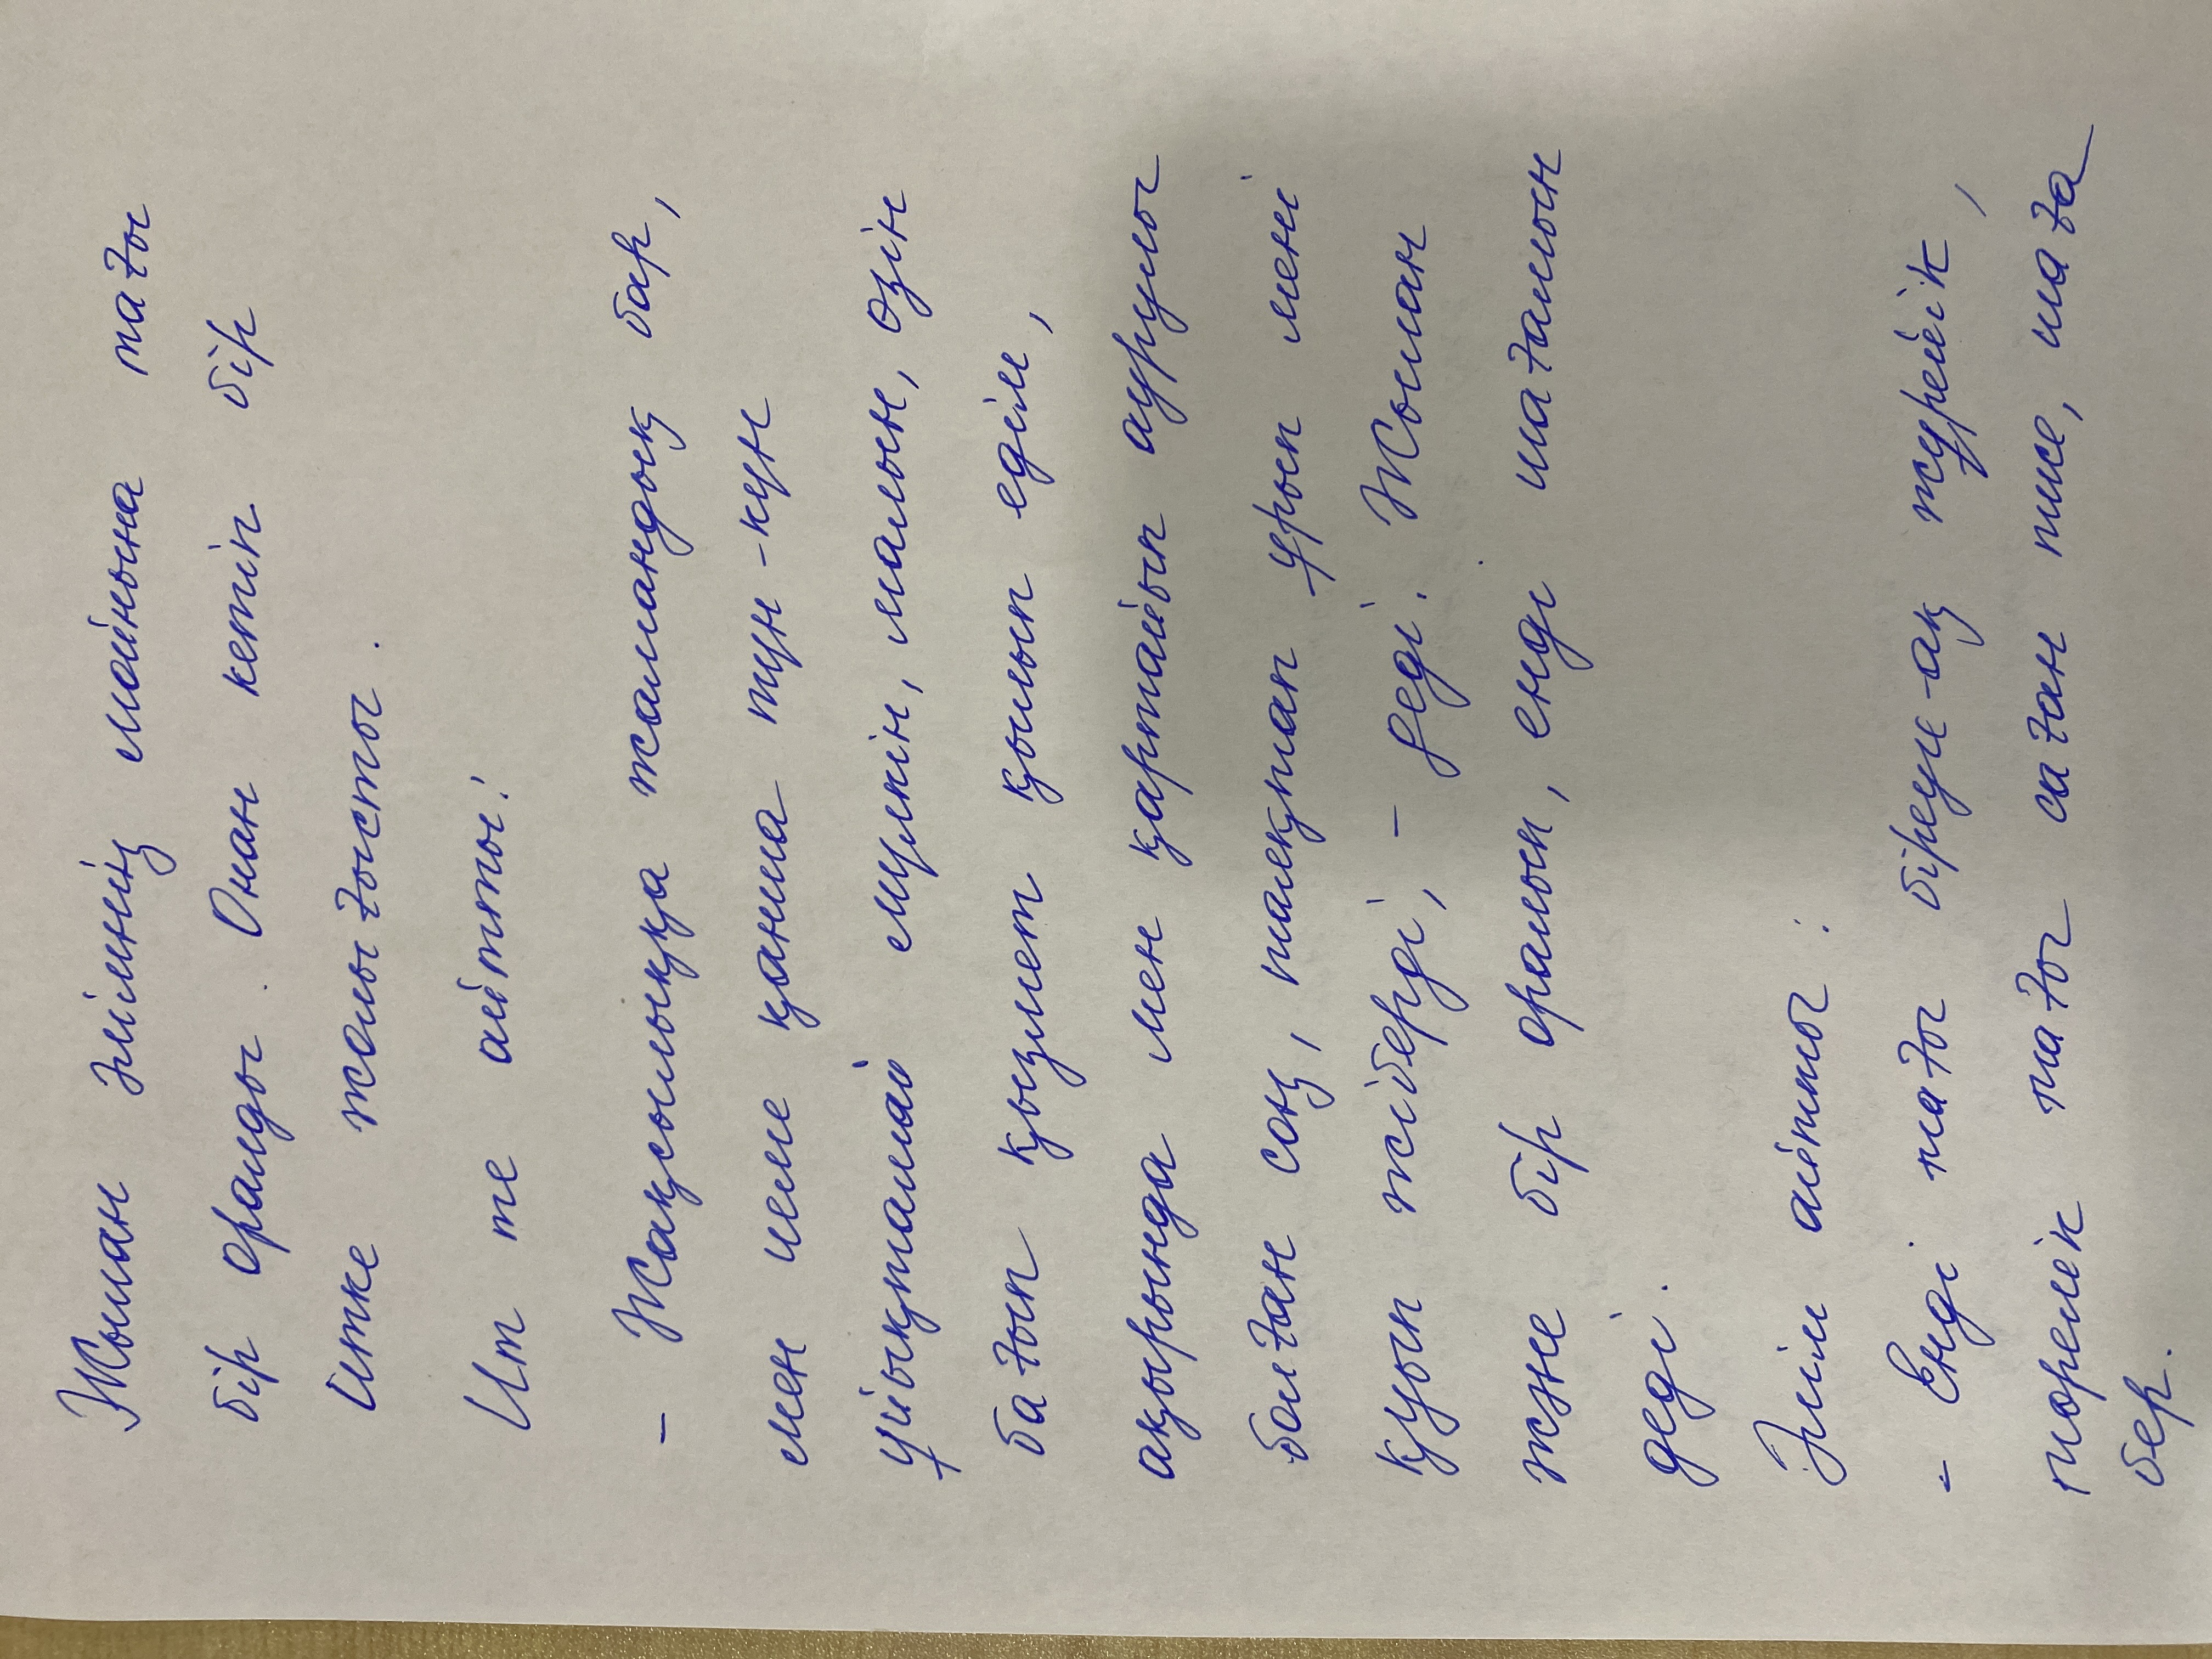 Жылан әлімнің мойнына тағы
бір оралды. Онан кетіп бір
итке жолығысты.
Ит те айтты:
– Жақсылыққа жамандық бар,
мен иеме қанша түн-күн
ұйықтамай мүлкін, малын, өзін
бағып қызмет қылып едім,
ақырында мен қартайып аурулы
болған соң, таяқтап ұрып мені
қуып жіберді, – деді. Жылан
және бір оралып, енді шағамын
деді.
Әлім айтты:
– Енді тағы біреуге-ақ жүрейік,
төрелік тағы саған тисе, шаға
бер.